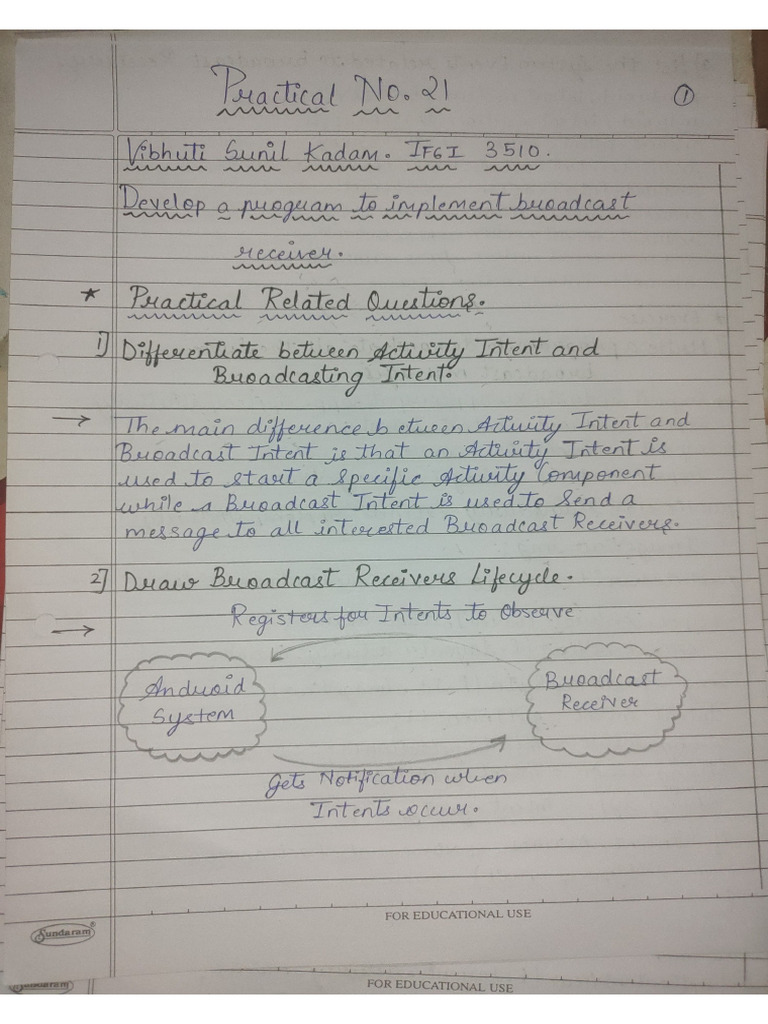 Practical No. 21
1
Vibhuti Sunil Kadam. IF6I 3510.
Develop a program to implement broadcast
receiver.
* Practical Related Questions.
1] Differentiate between Activity Intent and
Broadcasting Intent.
→ The main difference between Activity Intent and
Broadcast Intent is that an Activity Intent is
used to start a specific Activity Component
while a Broadcast Intent is used to send a
message to all interested Broadcast Receivers.
2] Draw Broadcast Receivers Lifecycle.
→ Registers for Intents to Observe
Android
System
Broadcast
Receiver
Gets Notification when
Intents occur.
FOR EDUCATIONAL USE
Sundaram®
FOR EDUCATIONAL USE